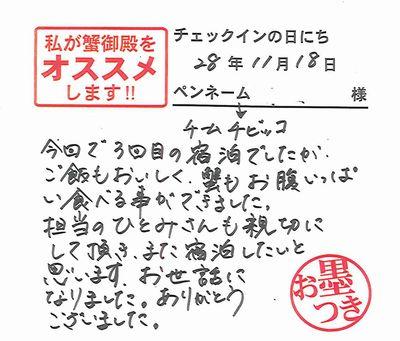 私が蟹御殿を
オススメ
します!!
チェックインの日にち
28年11月18日
ペンネーム 様
チームチビッコ
今回で3回目の宿泊でしたが、
ご飯もおいしく、蟹もお腹いっぱ
い食べる事ができました。
担当のひとみさんも親切に
して頂き、また宿泊したいと
思います。お世話に
なりました。ありがとう
ございました。
お墨
つき